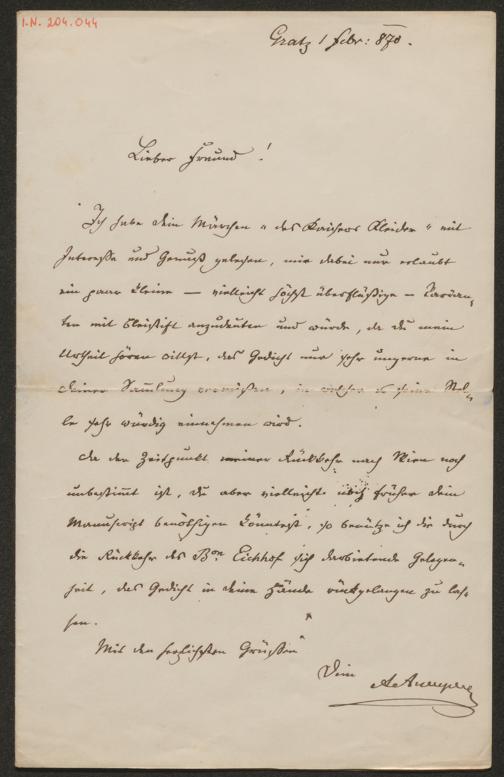 I.N. 204.044
Gratz 1 Febr: 870.
Lieber Freund!
Ich habe dein Märchen "des Kaisers Kleider" mit
Interesse und Genuß gelesen, mir dabei nur erlaubt
ein paar kleine – vielleicht höchst überflüßige – Varian-
ten mit Bleistift anzudeuten und würde, da du mein
Urtheil hören willst, das Gedicht nur sehr ungerne in
deiner Sammlung vermißen, in welcher es seine Stel-
le sehr würdig einnehmen wird.
Da der Zeitpunkt meiner Rückkehr nach Wien noch
unbestimmt ist, du aber vielleicht früher dein
Manuscript benöthigen könntest, so benütze ich die durch
die Rückkehr des Bon Eichhof sich darbietende Gelegen-
heit, das Gedicht in deine Hände rückgelangen zu las-
sen.
Mit den herzlichsten Grüßen
Dein
AAuersperg